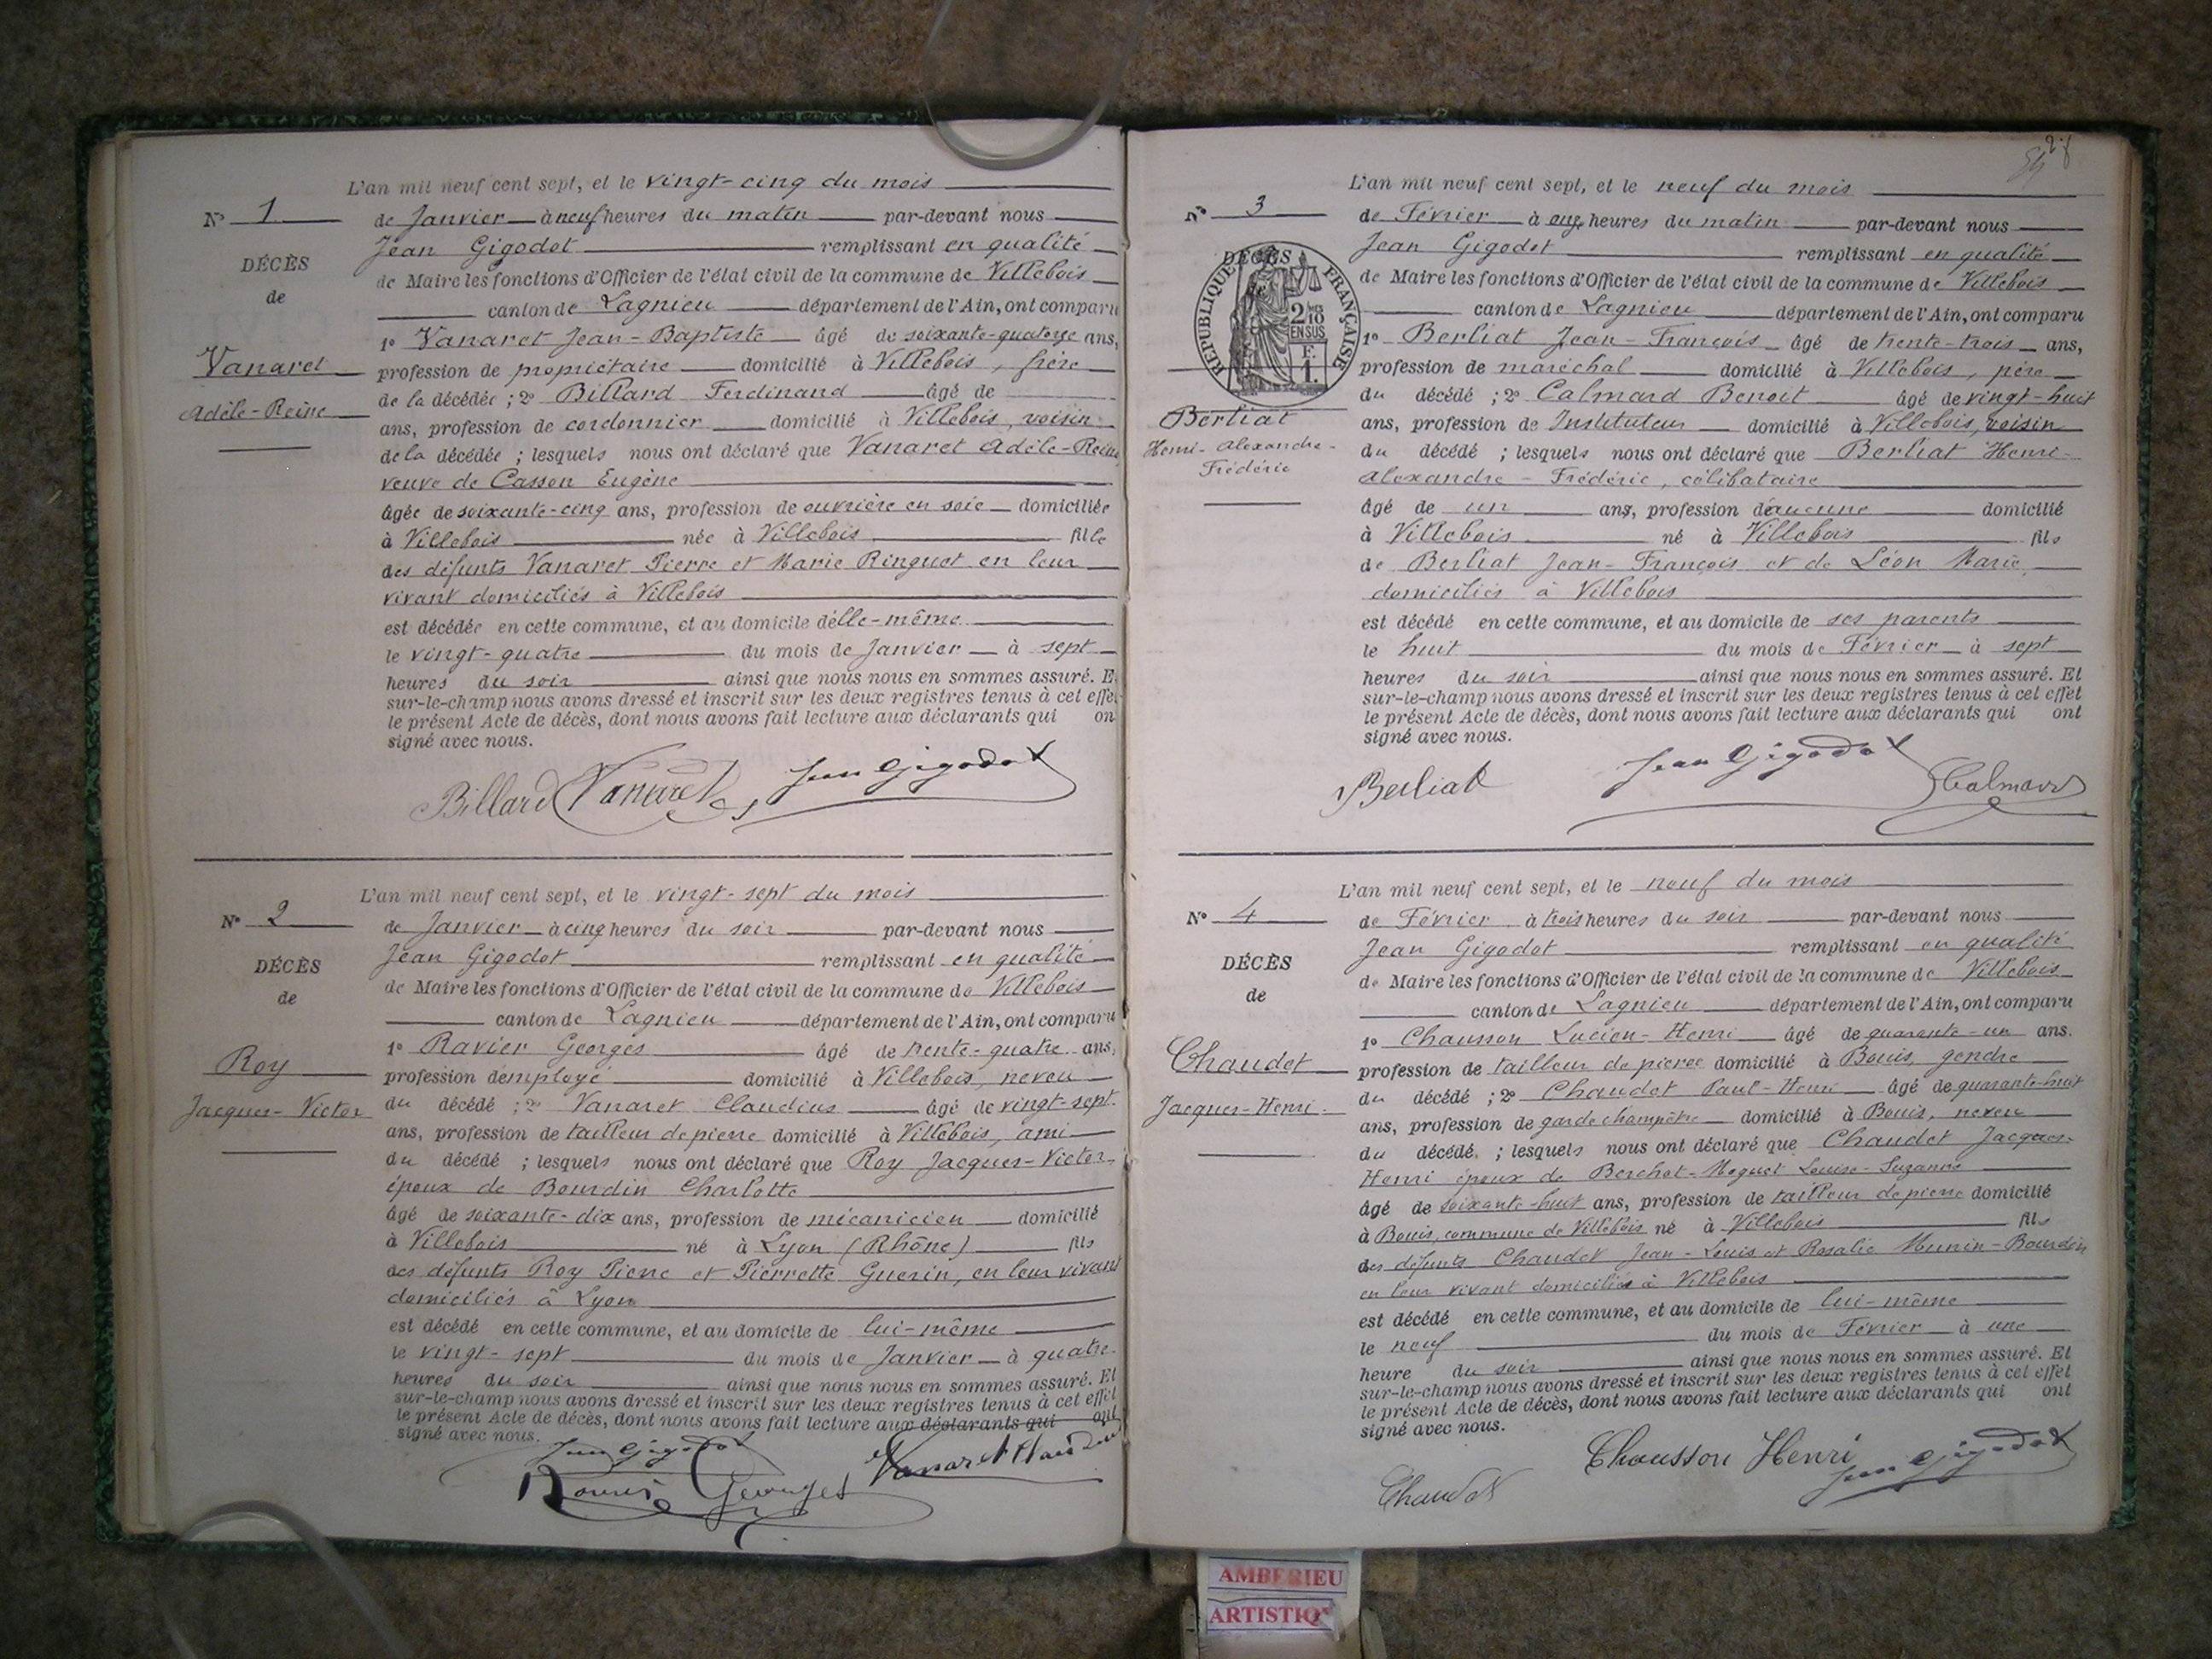 L'an mil neuf cent sept, et le vingt-cinq du mois
N° 1
de Janvier à neuf heures du matin par-devant nous
Jean Gigodot remplissant en qualité
DÉCÈS
de Maire les fonctions d'Officier de l'état civil de la commune de Villebois
de
canton de Lagnieu département de l'Ain, ont comparu
1° Vanaret Jean-Baptiste âgé de soixante-quatorze ans,
Vanaret
profession de propriétaire domicilié à Villebois, frère
de la décédée ; 2° Billard Ferdinand âgé de
Adèle-Reine
ans, profession de cordonnier domicilié à Villebois, voisin
de la décédée ; lesquels nous ont déclaré que Vanaret Adèle-Reine
veuve de Casson Eugène
âgée de soixante-cinq ans, profession de ouvrière en soie domiciliée
à Villebois née à Villebois fille
des défunts Vanaret Pierre et Marie Ringuet en leur
vivant domiciliés à Villebois
est décédée en cette commune, et au domicile d'elle-même
le vingt-quatre du mois de Janvier à sept
heures du soir ainsi que nous nous en sommes assuré. E
sur-le-champ nous avons dressé et inscrit sur les deux registres tenus à cet effet
le présent Acte de décès, dont nous avons fait lecture aux déclarants qui on
signé avec nous.
Billard Vanaret Jean Gigodot
L'an mil neuf cent sept, et le vingt-sept du mois
N° 2
de Janvier à cinq heures du soir par-devant nous
Jean Gigodot remplissant en qualité
DÉCÈS
de Maire les fonctions d'Officier de l'état civil de la commune de Villebois
de
canton de Lagnieu département de l'Ain, ont comparu
1° Ravier Georges âgé de trente-quatre ans,
Roy
profession d'employé domicilié à Villebois, neveu
Jacques-Victor
du décédé ; 2° Vanaret Claudius âgé de vingt-sept
ans, profession de tailleur de pierre domicilié à Villebois, ami
du décédé ; lesquels nous ont déclaré que Roy Jacques-Victor,
époux de Bourdin Charlotte
âgé de soixante-dix ans, profession de mécanicien domicilié
à Villebois né à Lyon (Rhône) fils
des défunts Roy Pierre et Pierrette Guerin, en leur vivant
domiciliés à Lyon
est décédé en cette commune, et au domicile de lui-même
le vingt-sept du mois de Janvier à quatre
heures du soir ainsi que nous nous en sommes assuré. Et
sur-le-champ nous avons dressé et inscrit sur les deux registres tenus à cet effet
le présent Acte de décès, dont nous avons fait lecture aux déclarants qui ont
signé avec nous.
Jean Gigodot
Georges
28
L'an mil neuf cent sept, et le neuf du mois
N° 3
de Février à onze heures du matin par-devant nous
Jean Gigodot remplissant en qualité
DÉCÈS
RÉPUBLIQUE FRANÇAISE
2/10 EN SUS
F. 1.
de Maire les fonctions d'Officier de l'état civil de la commune de Villebois
canton de Lagnieu département de l'Ain, ont comparu
1° Berliat Jean-François âgé de trente-trois ans,
profession de maréchal domicilié à Villebois, père
du décédé ; 2° Calmard Benoit âgé de vingt-huit
Berliat
ans, profession de Instituteur domicilié à Villebois, voisin
Henri-Alexandre-
du décédé ; lesquels nous ont déclaré que Berliat Henri-
Frédéric
Alexandre-Frédéric, célibataire
âgé de un ans, profession d'aucune domicilié
à Villebois né à Villebois fils
de Berliat Jean-François et de Léon Marie,
domiciliés à Villebois
est décédé en cette commune, et au domicile de ses parents
le huit du mois de Février à sept
heures du soir ainsi que nous nous en sommes assuré. Et
sur-le-champ nous avons dressé et inscrit sur les deux registres tenus à cet effet
le présent Acte de décès, dont nous avons fait lecture aux déclarants qui ont
signé avec nous.
Berliat Jean Gigodot Calmard
L'an mil neuf cent sept, et le neuf du mois
N° 4
de Février à trois heures du soir par-devant nous
Jean Gigodot remplissant en qualité
DÉCÈS
de Maire les fonctions d'Officier de l'état civil de la commune de Villebois
de
canton de Lagnieu département de l'Ain, ont comparu
1° Chausson Lucien-Henri âgé de quarante-un ans.
Chaudet
profession de tailleur de pierre domicilié à Bouis, gendre
du décédé ; 2° Chaudet Paul-Henri âgé de quarante-huit
Jacques-Henri
ans, profession de garde champêtre domicilié à Bouis, neveu
du décédé, ; lesquels nous ont déclaré que Chaudet Jacques-
Henri époux de Berchet-Moguet Louise-Suzanne
âgé de soixante-huit ans, profession de tailleur de pierre domicilié
à Bouis, commune de Villebois né à Villebois fils
des défunts Chaudet Jean-Louis et Rosalie Munin-Bourdin
en leur vivant domiciliés à Villebois
est décédé en cette commune, et au domicile de lui-même
le neuf du mois de Février à une
heure du soir ainsi que nous nous en sommes assuré. Et
sur-le-champ nous avons dressé et inscrit sur les deux registres tenus à cet effet
le présent Acte de décès, dont nous avons fait lecture aux déclarants qui ont
signé avec nous.
Chaudet Chausson Henri Jean Gigodot
AMBERIEU
ARTISTIQ